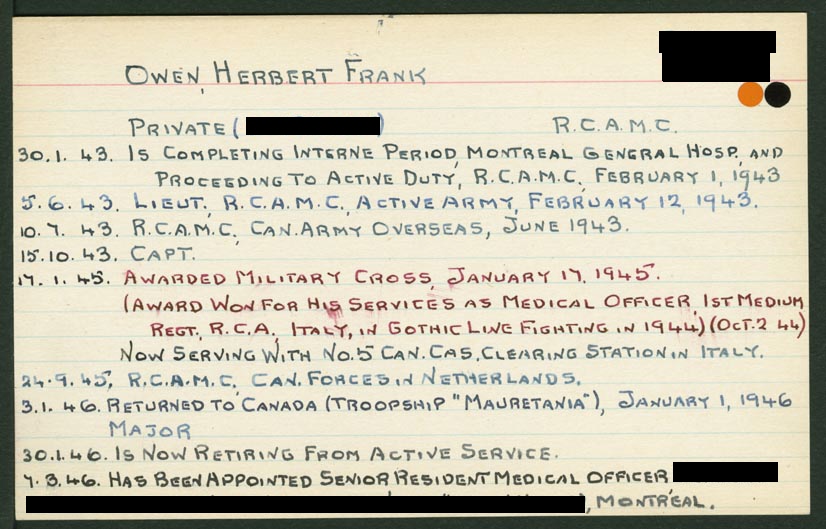 OWEN, HERBERT FRANK
PRIVATE ( ) R.C.A.M.C.
30.1. 43. IS COMPLETING INTERNE PERIOD, MONTREAL GENERAL HOSP., AND
PROCEEDING TO ACTIVE DUTY, R.C.A.M.C., FEBRUARY 1, 1943
5.6.43. LIEUT., R.C.A.M.C., ACTIVE ARMY, FEBRUARY 12, 1943.
10.7.43. R.C.A.M.C., CAN. ARMY OVERSEAS, JUNE 1943.
15.10.43. CAPT.
17.1.45. AWARDED MILITARY CROSS, JANUARY 17, 1945.
(AWARD WON FOR HIS SERVICES AS MEDICAL OFFICER, 1ST MEDIUM
REGT., R.C.A., ITALY, IN GOTHIC LINE FIGHTING IN 1944) (OCT. 2 44)
NOW SERVING WITH NO. 5 CAN. CAS. CLEARING STATION IN ITALY.
24.9.45, R.C.A.M.C., CAN. FORCES IN NETHERLANDS.
3.1.46. RETURNED TO CANADA (TROOPSHIP "MAURETANIA"), JANUARY 1, 1946
MAJOR
30.1.46. IS NOW RETIRING FROM ACTIVE SERVICE.
7.3.46. HAS BEEN APPOINTED SENIOR RESIDENT MEDICAL OFFICER,
, MONTREAL.